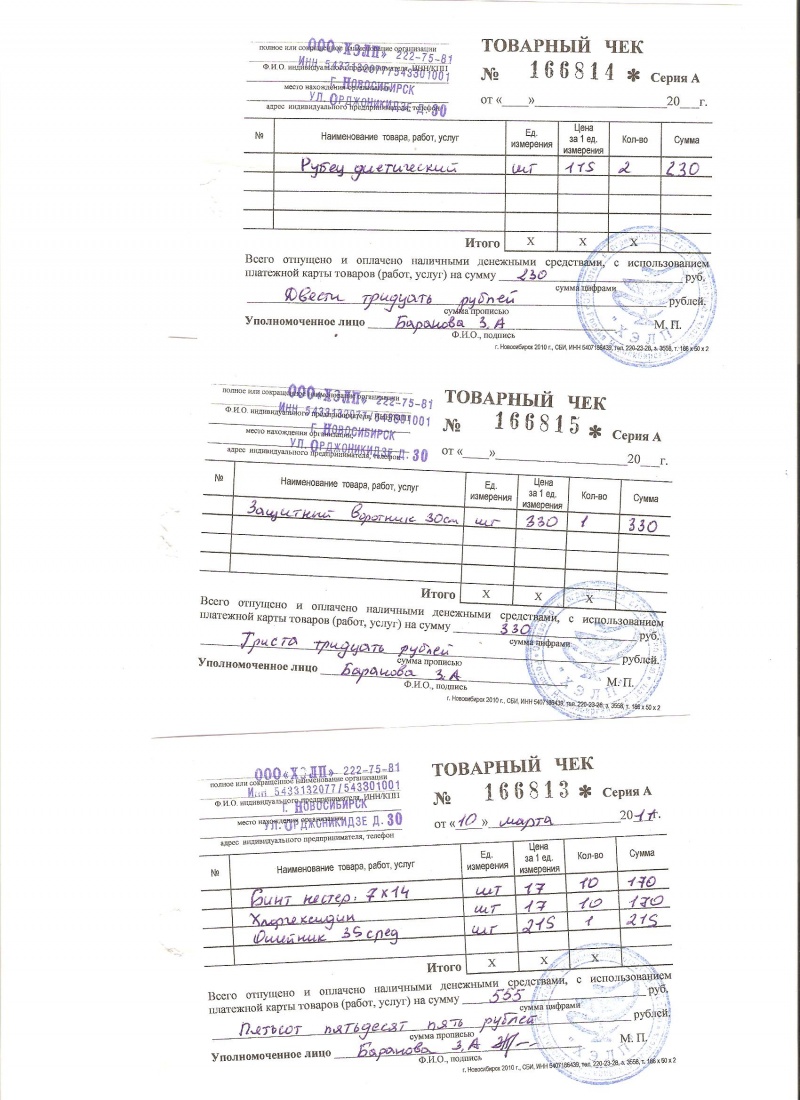 ООО «ХЭЛП» 222-75-81
полное или сокращенное наименование организации
ИНН 5433132077/543301001
Ф.И.О. индивидуального предпринимателя, ИНН/КПП
г. Новосибирск
место нахождения организации
ул. Орджоникидзе д. 30
адрес индивидуального предпринимателя, телефон
ТОВАРНЫЙ ЧЕК
№ 166814 * Серия А
от «____» 20___г.
№ Наименование товара, работ, услуг Ед. измерения Цена за 1 ед. измерения Кол-во Сумма
Рубец диетический шт 115 2 230
Итого X X X
Всего отпущено и оплачено наличными денежными средствами, с использованием
платежной карты товаров (работ, услуг) на сумму 230 руб.
сумма цифрами
Двести тридцать рублей рублей.
сумма прописью
Уполномоченное лицо Баранова З.А М. П.
Ф.И.О., подпись
"ХЭЛП"
г. Новосибирск 2010 г., СБИ, ИНН 5407186439, тел. 220-23-28, з. 3558, т. 166 х 50 х 2
ООО «ХЭЛП» 222-75-81
полное или сокращенное наименование организации
ИНН 5433132077/543301001
Ф.И.О. индивидуального предпринимателя, ИНН/КПП
г. Новосибирск
место нахождения организации
ул. Орджоникидзе д. 30
адрес индивидуального предпринимателя, телефон
ТОВАРНЫЙ ЧЕК
№ 166815 * Серия А
от «____» 20___г.
№ Наименование товара, работ, услуг Ед. измерения Цена за 1 ед. измерения Кол-во Сумма
Защитный воротник 30см шт 330 1 330
Итого X X X
Всего отпущено и оплачено наличными денежными средствами, с использованием
платежной карты товаров (работ, услуг) на сумму 330 руб.
сумма цифрами
Триста тридцать рублей рублей.
сумма прописью
Уполномоченное лицо Баранова З.А М. П.
Ф.И.О., подпись
"ХЭЛП"
г. Новосибирск 2010 г., СБИ, ИНН 5407186439, тел. 220-23-28, з. 3558, т. 166 х 50 х 2
ООО «ХЭЛП» 222-75-81
полное или сокращенное наименование организации
ИНН 5433132077/543301001
Ф.И.О. индивидуального предпринимателя, ИНН/КПП
г. Новосибирск
место нахождения организации
ул. Орджоникидзе д. 30
адрес индивидуального предпринимателя, телефон
ТОВАРНЫЙ ЧЕК
№ 166813 * Серия А
от «10» марта 2011г.
№ Наименование товара, работ, услуг Ед. измерения Цена за 1 ед. измерения Кол-во Сумма
Бинт нестер. 7х14 шт 17 10 170
Хлоргексидин шт 17 10 170
Ошейник 35 сред шт 215 1 215
Итого X X X
Всего отпущено и оплачено наличными денежными средствами, с использованием
платежной карты товаров (работ, услуг) на сумму 555 руб.
сумма цифрами
Пятьсот пятьдесят пять рублей рублей.
сумма прописью
Уполномоченное лицо Баранова З.А М. П.
Ф.И.О., подпись
"ХЭЛП"
г. Новосибирск 2010 г., СБИ, ИНН 5407186439, тел. 220-23-28, з. 3558, т. 166 х 50 х 2